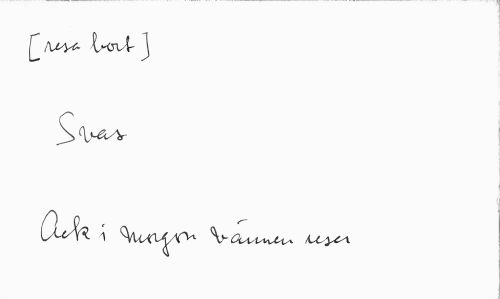 [resa bort]
Svas
Ack i morgon vännen reser